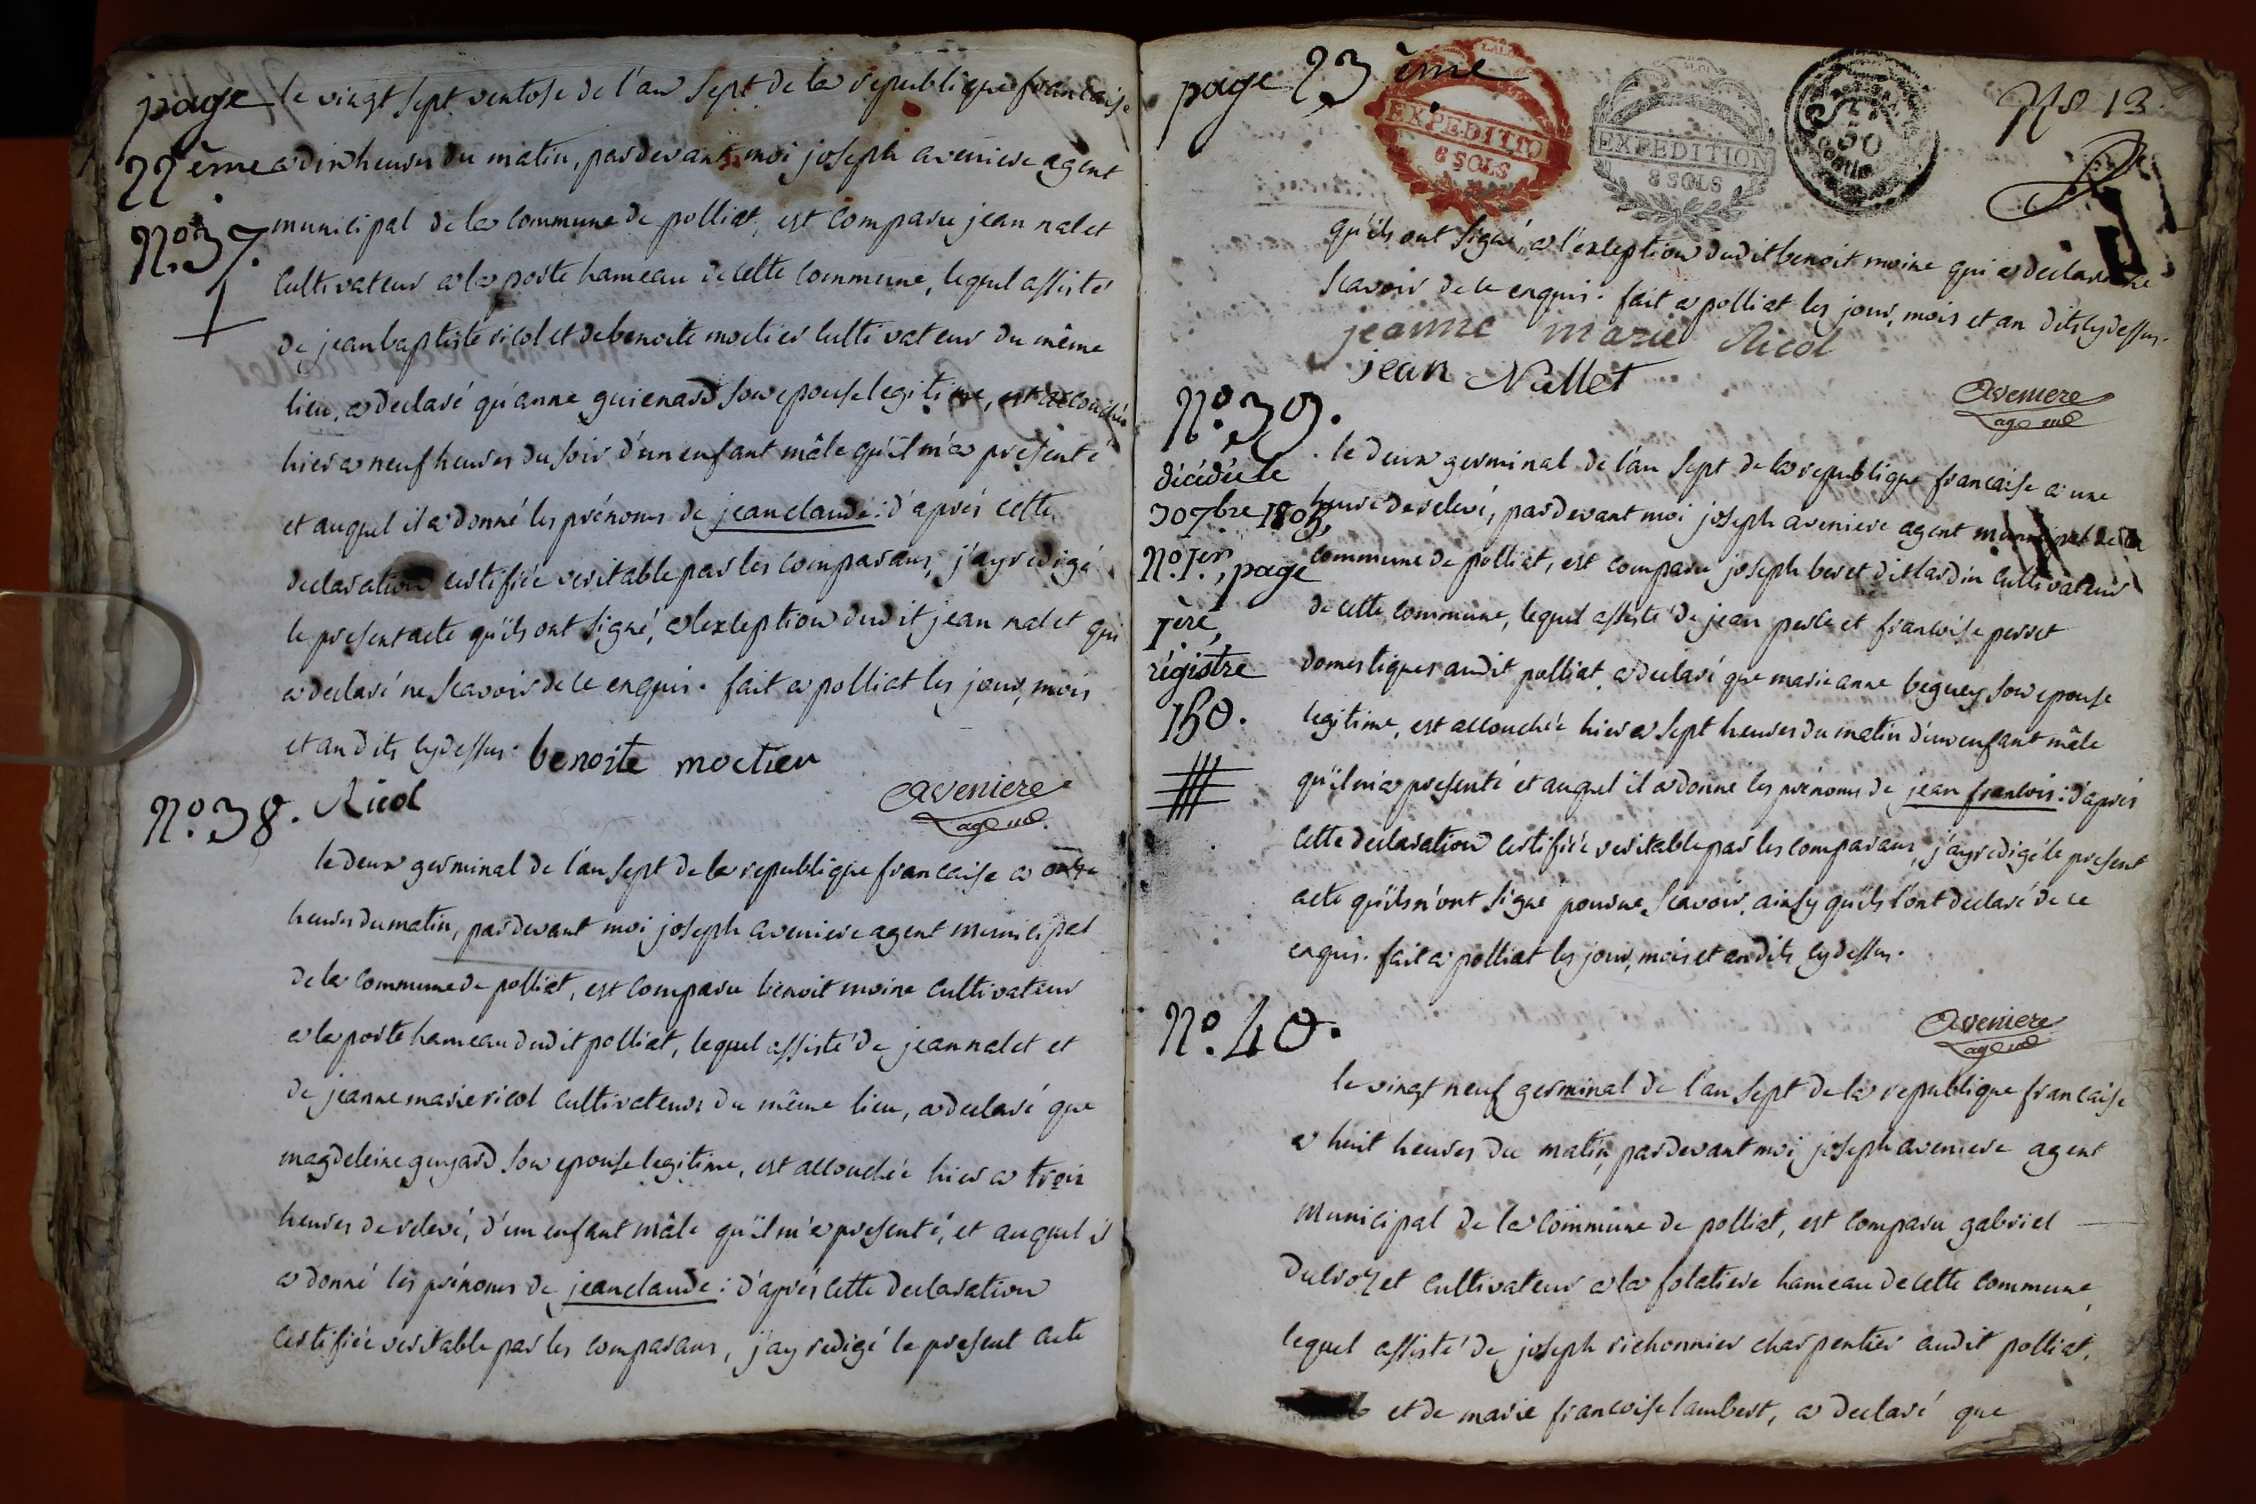 page
22ème
No. 37.
le vingt sept ventose de l'an sept de la republique francaise
a dix heures du matin, pardevant moi joseph aveniere agent
municipal de la commune de polliat, est comparu jean nalet
cultivateur a la poste hameau de cette commune, lequel assisté
de jean baptiste ricol et de benoite moctier cultivateur du même
lieu, a declaré qu'anne guienard son epouse legitime, est accouchée
hier a neuf heures du soir d'un enfant mâle qu'il m'a presenté
et auquel il a donné les prénoms de jean claude: d'après cette
declaration certifiée veritable par les comparans, j'ay redigé
le present acte qu'ils ont signé, a l'exception dudit jean nalet qui
a declaré ne scavoir de ce enquis. fait a polliat les jour, mois
et an dits cy dessus. benoite moctier
Ricol
aveniere
age. mal.
No. 38.
le deux germinal de l'an sept de la republique francaise a onze
heures du matin, pardevant moi joseph aveniere agent municipal
de la commune de polliat, est comparu benoit moine cultivateur
a la poste hameau dudit polliat, lequel assisté de jean nalet et
de jeanne marie ricol cultivateurs du même lieu, a declaré que
magdeleine guyard son epouse legitime, est accouchée hier a trois
heures de relevé, d'un enfant mâle qu'il m'a presenté, et auquel il
a donné les prénoms de jean claude: d'après cette declaration
certifiée veritable par les comparans, j'ay redigé le present acte
page 23 ème
EXPEDITIO
8 SOLS
EXPEDITION
8 SOLS
50
No 12.
qu'ils ont signé, a l'exception dudit benoit moine qui a declaré ne
scavoir de ce enquis. fait a polliat les jour, mois et an dits cy dessus.
jeanne marie Ricol
jean Nallet
aveniere
age. mal.
No. 39.
décédé le
30 7bre 1809,
No. 1er, page
1ère,
régistre
150.
le deux germinal de l'an sept de la republique francaise a une
heure de relevé, pardevant moi joseph aveniere agent municipal de la
commune de polliat, est comparu joseph beret dit lardin cultivateur
de cette commune, lequel assisté de jean perle et francoise perret
domestiques audit polliat, a declaré que marie anne beguey son epouse
legitime, est accouchée hier a sept heures du matin d'un enfant mâle
qu'il m'a presenté et auquel il a donné les prénoms de jean francois: d'après
cette declaration certifiée veritable par les comparans, j'ay redigé le present
acte qu'ils n'ont signé pour ne scavoir, ainsy qu'ils l'ont declaré de ce
enquis. fait a polliat les jour, mois et an dits cy dessus.
aveniere
age. mal.
No. 40.
le vingt neuf germinal de l'an sept de la republique francaise
a huit heures du matin, pardevant moi joseph aveniere agent
municipal de la commune de polliat, est comparu gabriel
ducrozet cultivateur a la folatiere hameau de cette commune,
lequel assisté de joseph richonnier charpentier audit polliat,
et de marie francoise lambert, a declaré que